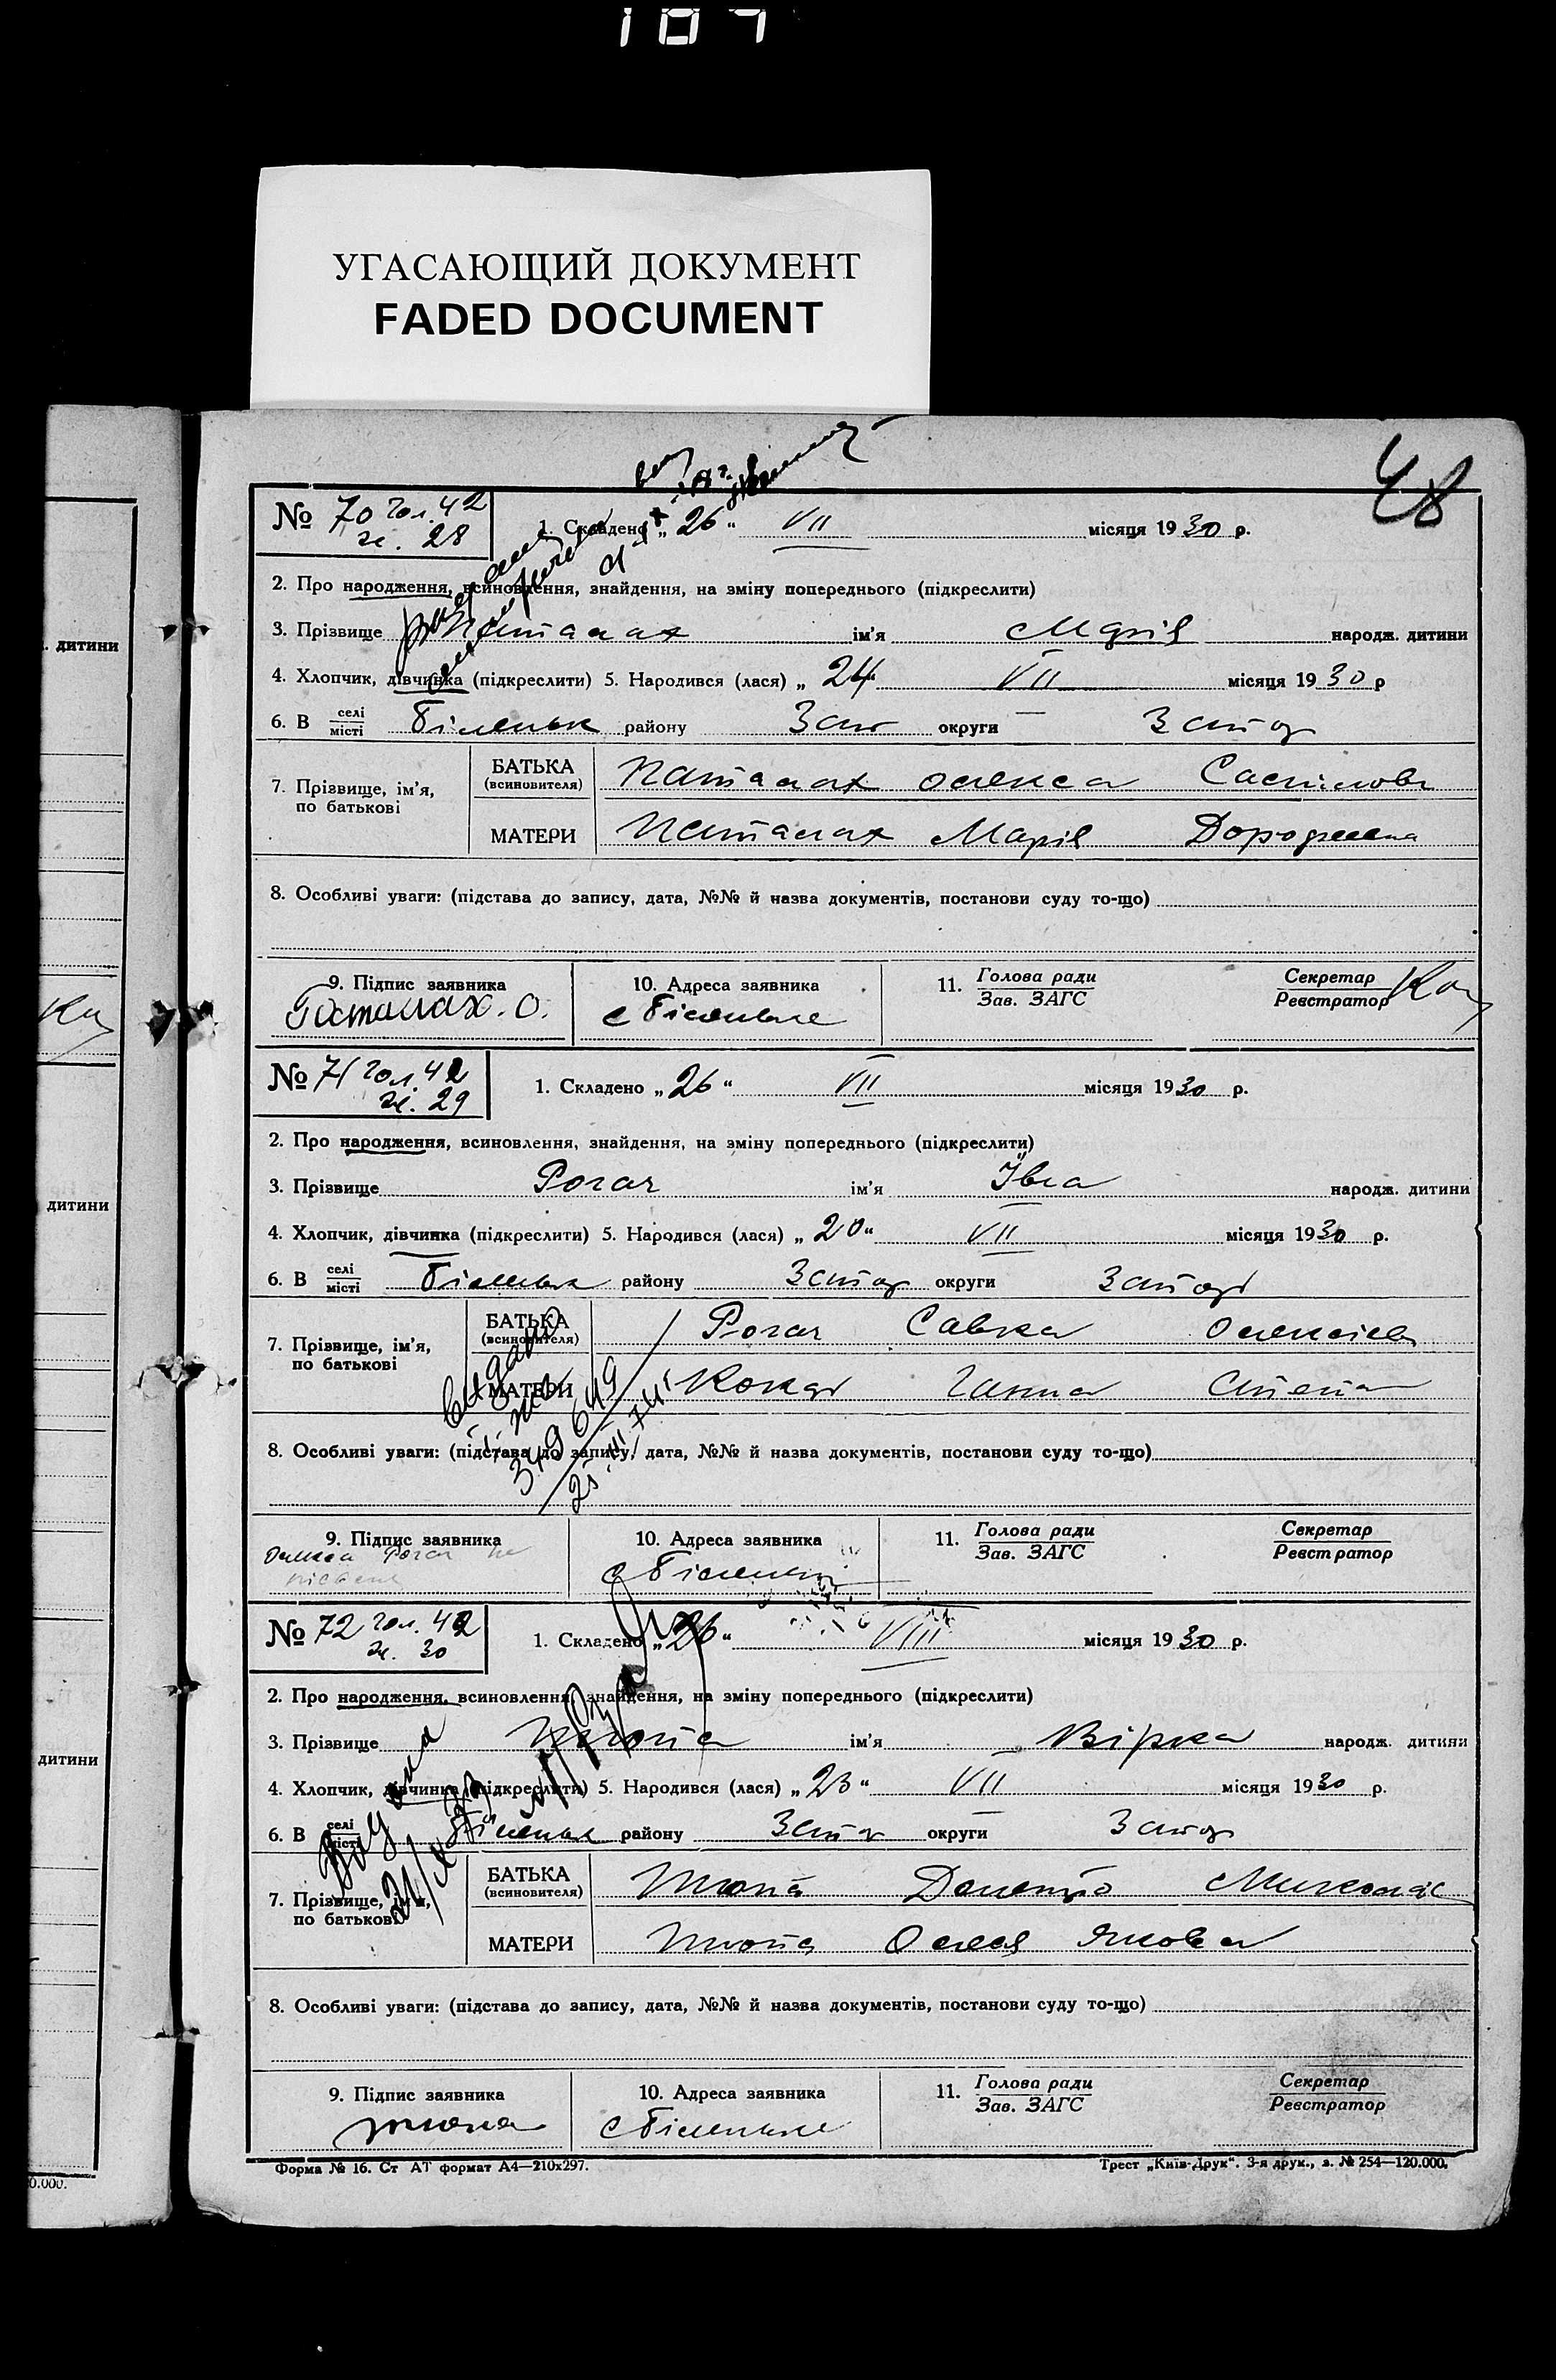 107
УГАСАЮЩИЙ ДОКУМЕНТ
FADED DOCUMENT
48
№ 70 чол. 42
ж. 28
1. Складено „26“ VII місяця 1930 р.
2. Про народження, всиновлення, знайдення, на зміну попереднього (підкреслити)
3. Прізвище ім'я Марія народж. дитини
4. Хлопчик, дівчинка (підкреслити) 5. Народився (лася) „24“ VII місяця 1930 р
6. В селі місті Біленьк району Зап округи Запор
7. Прізвище, ім'я, по батькові
БАТЬКА (всиновителя) Паталах Олекса
МАТЕРИ Паталах Марія
8. Особливі уваги: (підстава до запису, дата, №№ й назва документів, постанови суду то-що)
9. Підпис заявника 10. Адреса заявника 11. Голова ради Зав. ЗАГС Секретар Реєстратор
Паталах. О. с Біленьке
№ 71 чол. 42
ж. 29
1. Складено „26“ VII місяця 1930 р.
2. Про народження, всиновлення, знайдення, на зміну попереднього (підкреслити)
3. Прізвище Рогач ім'я Івга народж. дитини
4. Хлопчик, дівчинка (підкреслити) 5. Народився (лася) „20“ VII місяця 1930 р.
6. В селі місті Біленьк району Запор округи Запор
7. Прізвище, ім'я, по батькові
БАТЬКА (всиновителя) Рогач Савка Олексіев
МАТЕРИ Ганна Степан
видано
349649
25.III.74г
8. Особливі уваги: (підстава до запису, дата, №№ й назва документів, постанови суду то-що)
9. Підпис заявника 10. Адреса заявника 11. Голова ради Зав. ЗАГС Секретар Реєстратор
Олекса Рогач не с Біленьк
№ 72 чол. 42
ж. 30
1. Складено „26“ VIII місяця 1930 р.
2. Про народження, всиновлення, знайдення, на зміну попереднього (підкреслити)
3. Прізвище Тюпа ім'я Вірка народж. дитини
4. Хлопчик, дівчинка (підкреслити) 5. Народився (лася) „23“ VII місяця 1930 р.
6. В селі місті Біленьк району Запор округи Запор
7. Прізвище, ім'я, по батькові
БАТЬКА (всиновителя) Тюпа
МАТЕРИ Тюпа Олеся Яковл
8. Особливі уваги: (підстава до запису, дата, №№ й назва документів, постанови суду то-що)
9. Підпис заявника 10. Адреса заявника 11. Голова ради Зав. ЗАГС Секретар Реєстратор
Тюпа с Біленьке
Форма № 16. Ст АТ формат А4—210х297. Трест „Київ-Друк“. 3-я друк., з. № 254—120.000.
дитини
дитини
дитини
0.000.